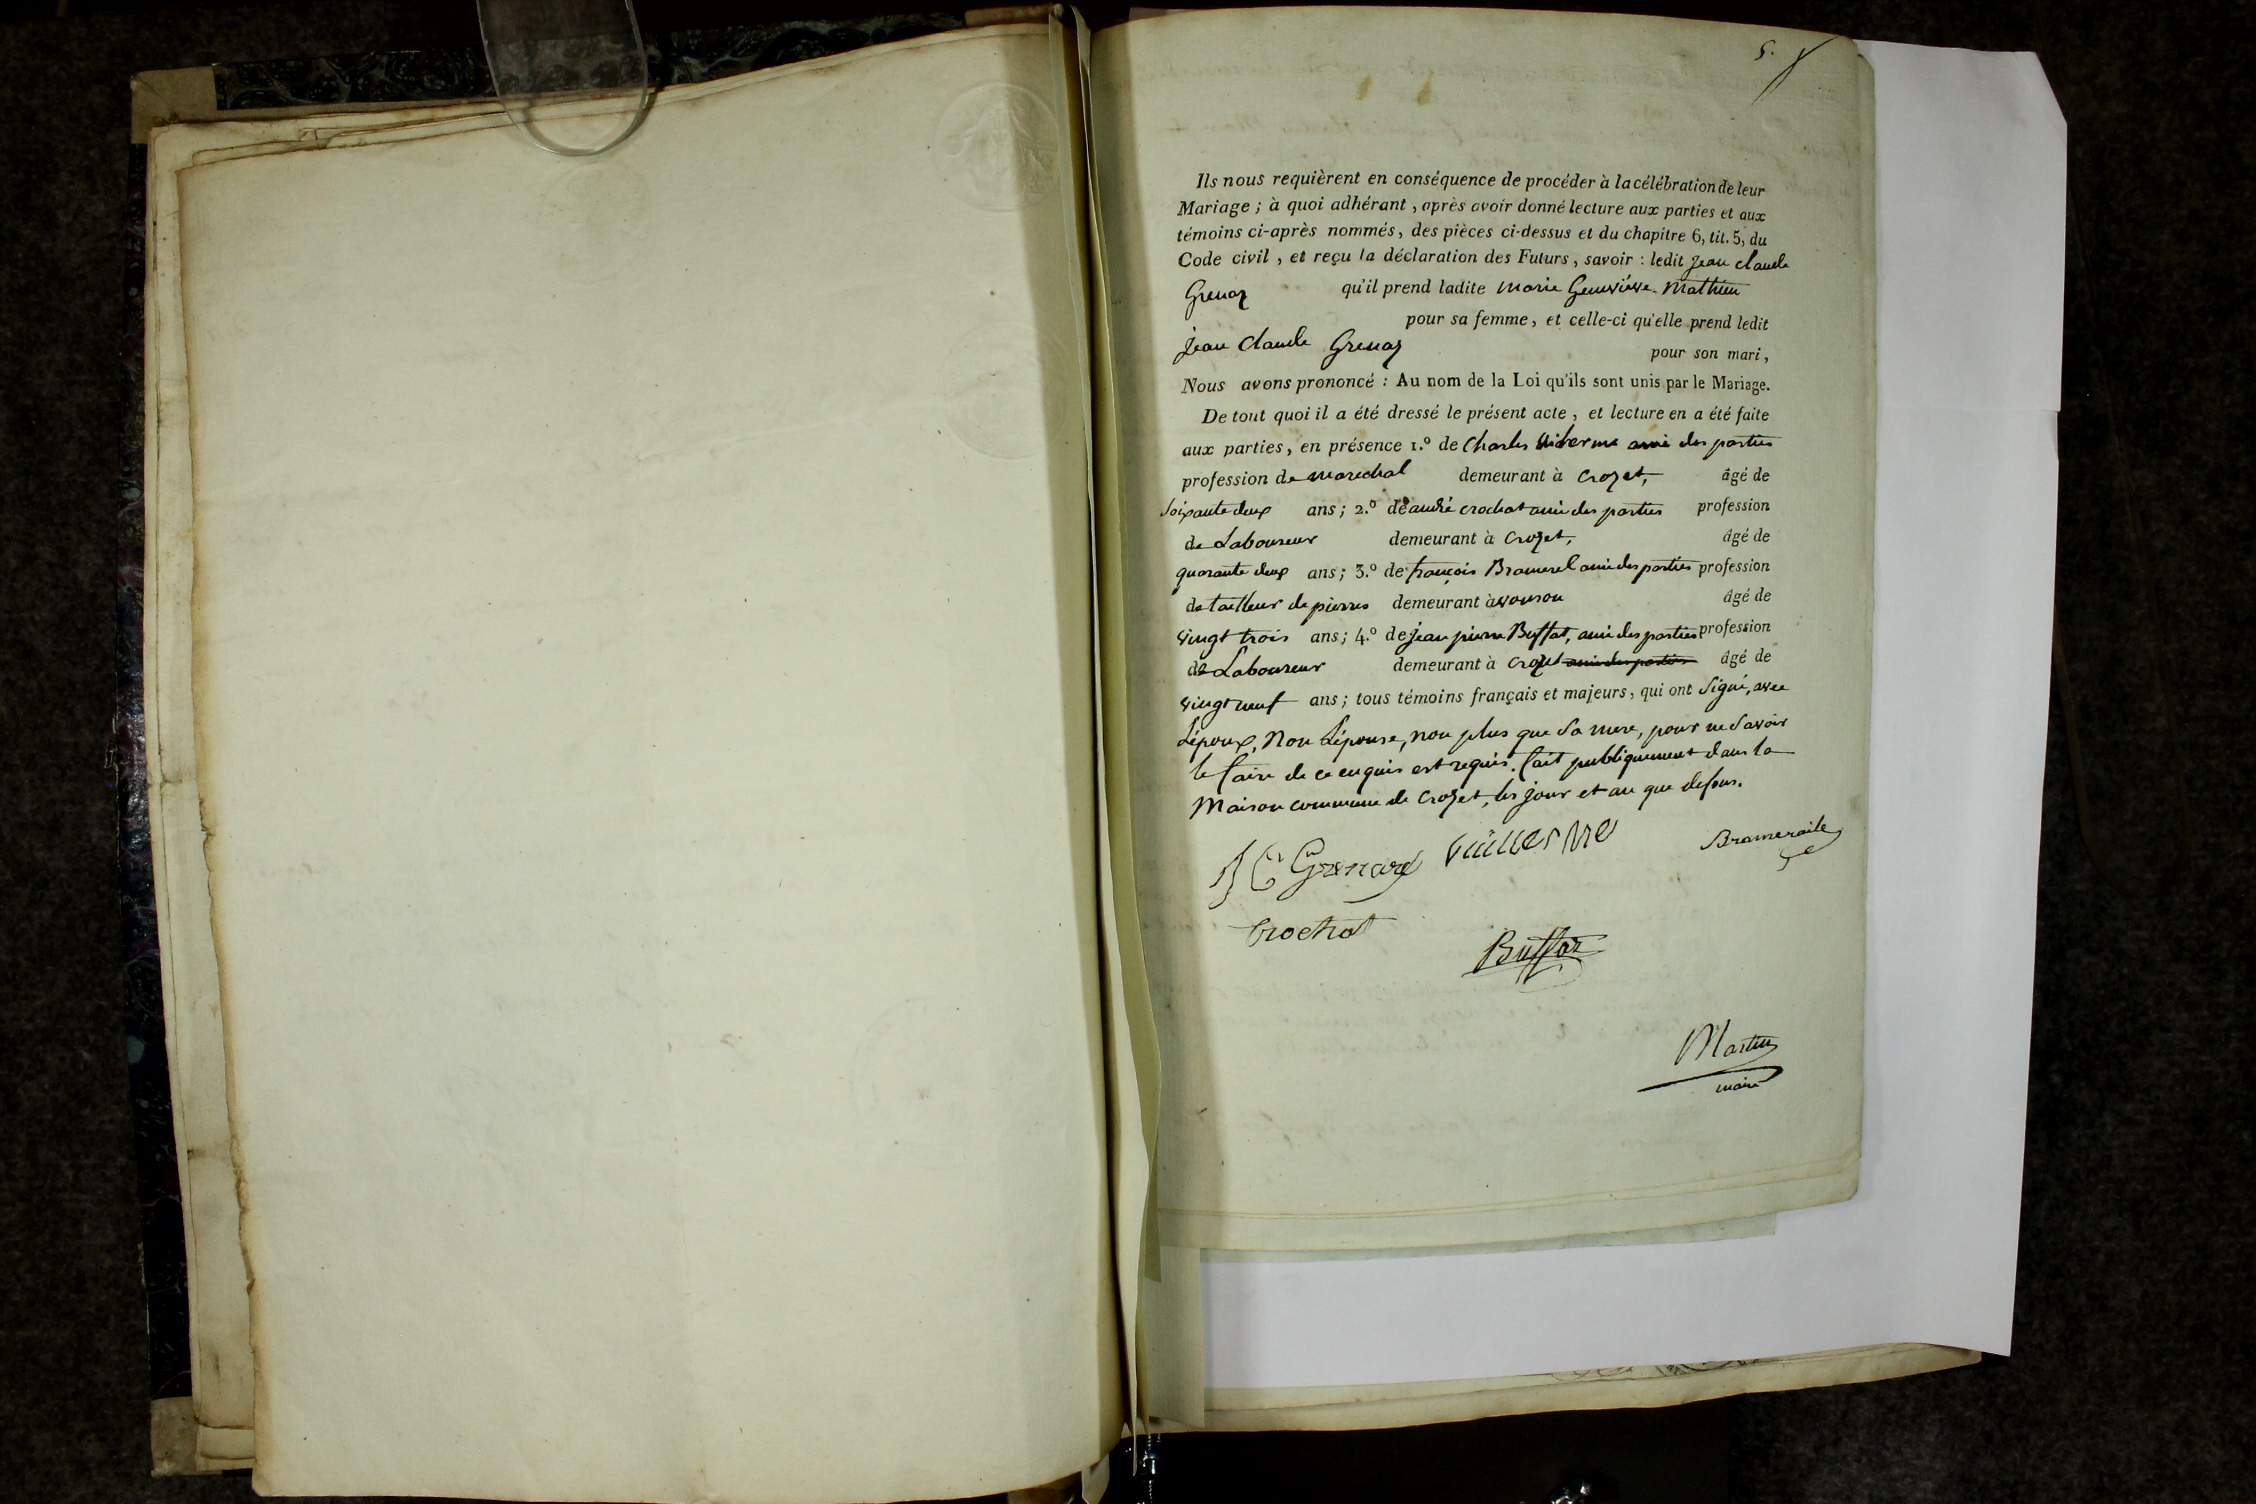 5.
Ils nous requièrent en conséquence de procéder à la célébration de leur
Mariage ; à quoi adhérant , après avoir donné lecture aux parties et aux
témoins ci-après nommés, des pièces ci-dessus et du chapitre 6, tit. 5, du
Code civil , et reçu la déclaration des Futurs , savoir : ledit jean claude
Grenaz qu'il prend ladite marie Geneviève Mathieu
pour sa femme, et celle-ci qu'elle prend ledit
jean Claude Grenaz pour son mari,
Nous avons prononcé : Au nom de la Loi qu'ils sont unis par le Mariage.
De tout quoi il a été dressé le présent acte , et lecture en a été faite
aux parties, en présence 1.º de Charles ami des parties
profession de marechal demeurant à Crozet, âgé de
soixante deux ans; 2.º de andré crochat ami des parties profession
de Laboureur demeurant à Crozet, âgé de
quarante deux ans; 3.º de françois Bramerel ami des parties profession
de tailleur de pierres demeurant à vouson âgé de
vingt trois ans; 4.º de jean pierre Buffat, ami des parties profession
de Laboureur demeurant à Crozet ami des parties âgé de
vingt neuf ans; tous témoins français et majeurs, qui ont signé, avec
L'époux, Non L'épouse, non plus que sa mere, pour ne savoir
le faire de ce enquis est requis. fait publiquement dans la
Maison commune de Crozet, les jour et an que dessus.
J C Grenard Vuillerme Brameraile
Crochat
Buffaz
Martin
maire